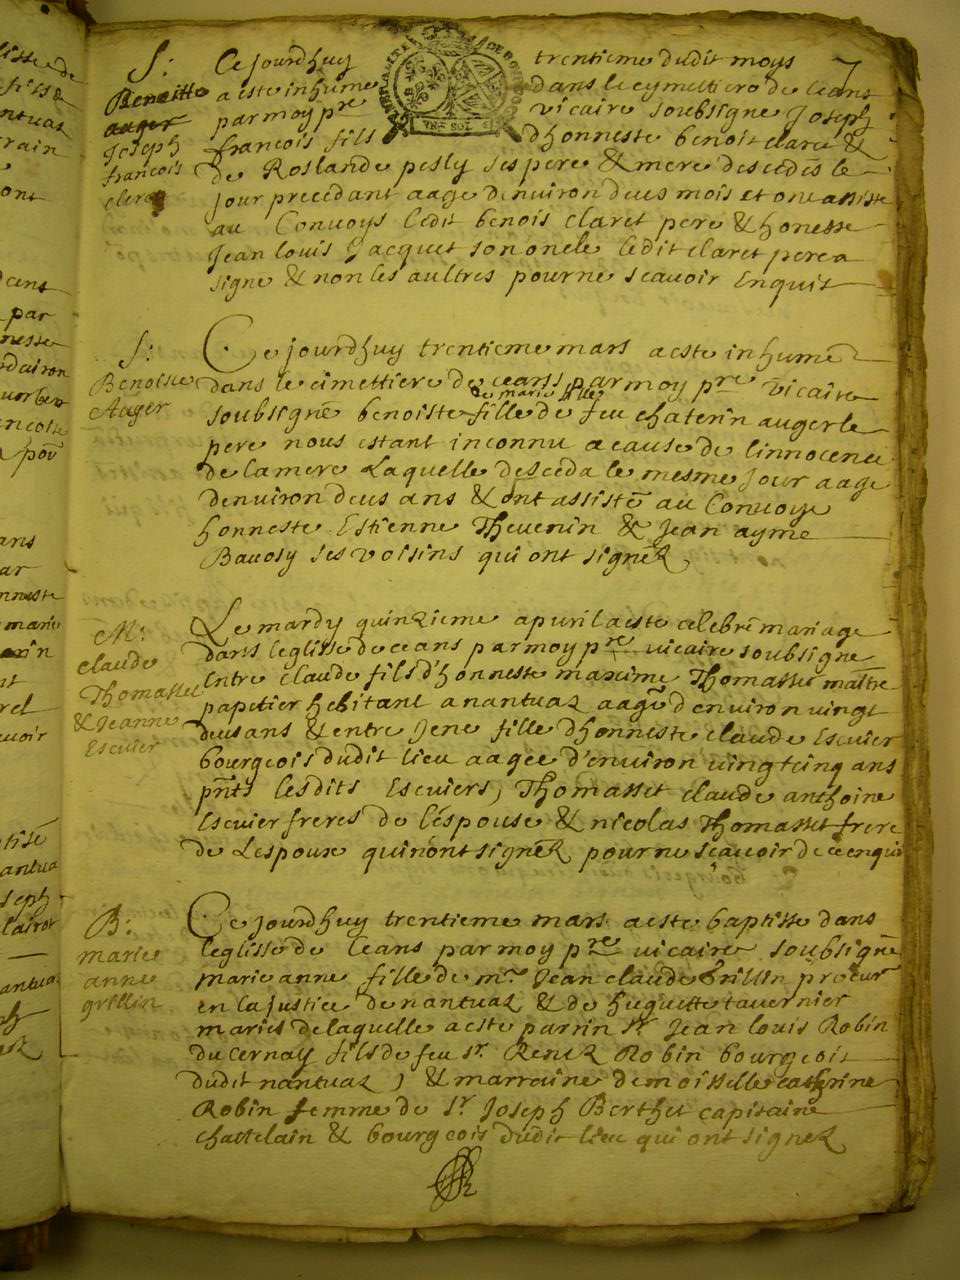 7
S:
Benoitte
auger
Joseph
francois
cleret
Ce jourdhuy trentieme dudit moys
a este inhume dans le cymettiere de ceans
par moy pre vicaire soubsigne Joseph
francois fils dhonneste benoit claret &
de Roslande pesly ses pere & mere descedes le
jour precedant aage denviron deus mois et ont assiste
au Convoys ledit benois claret pere & honeste
Jean louis Jacquet son oncle ledit claret pere a
signe & non les aultres pour ne scavoir Enquis
S:
Benoiste
Auger
Ce jourdhuy trentieme mars a este inhume
dans le cimettiere de ceans par moy pre vicaire
de marie fille
soubsigne benoiste fille de feu chaterin auger le
pere nous estant inconnu a cause de linnocence
de la mere Laquelle desceda le mesme jour aage
denviron deus ans & ont assiste au Convoye
honneste Estienne Thevenin & Jean ayme
Bavosy ses voisins qui ont signez
M:
claude
Thomasset
& Jeanne
Escuier
Le mardy quinzieme apvril a este celebre mariage
dans leglise de ceans par moy pre vicaire soubsigne
Entre claude fils d'honneste maxime Thomasset maitre
papetier hebitant a nantuaz aage denviron vingt
deus ans & entre Jene fille dhonneste claude Escuier
bourgeois dudit lieu aagee d'environ vingtcinq ans
pnts lesdits Escuiers, Thomasset claude anthoine
Escuier freres de l'espouse & nicolas Thomasset frere
de Lespoux qui nont signez pour ne scavoir de ce enquis
B:
marie
anne
grillin
Ce jourdhuy trentieme mars a este baptisse dans
leglisse de ceans par moy pre vicaire soubsigne
marie anne fille de mr Jean claude Grillin procur
en la justice de nantuaz & de huguette tavernier
maries de laquelle a este parrin sr Jean louis Robin
du cernay fils de feu sr Renez Robin bourgeois
dudit nantuaz, & marraine demoisselle catherine
Robin femme de sr Joseph Berthet capitaine
chastelain & bourgeois dudit lieu qui ont signez